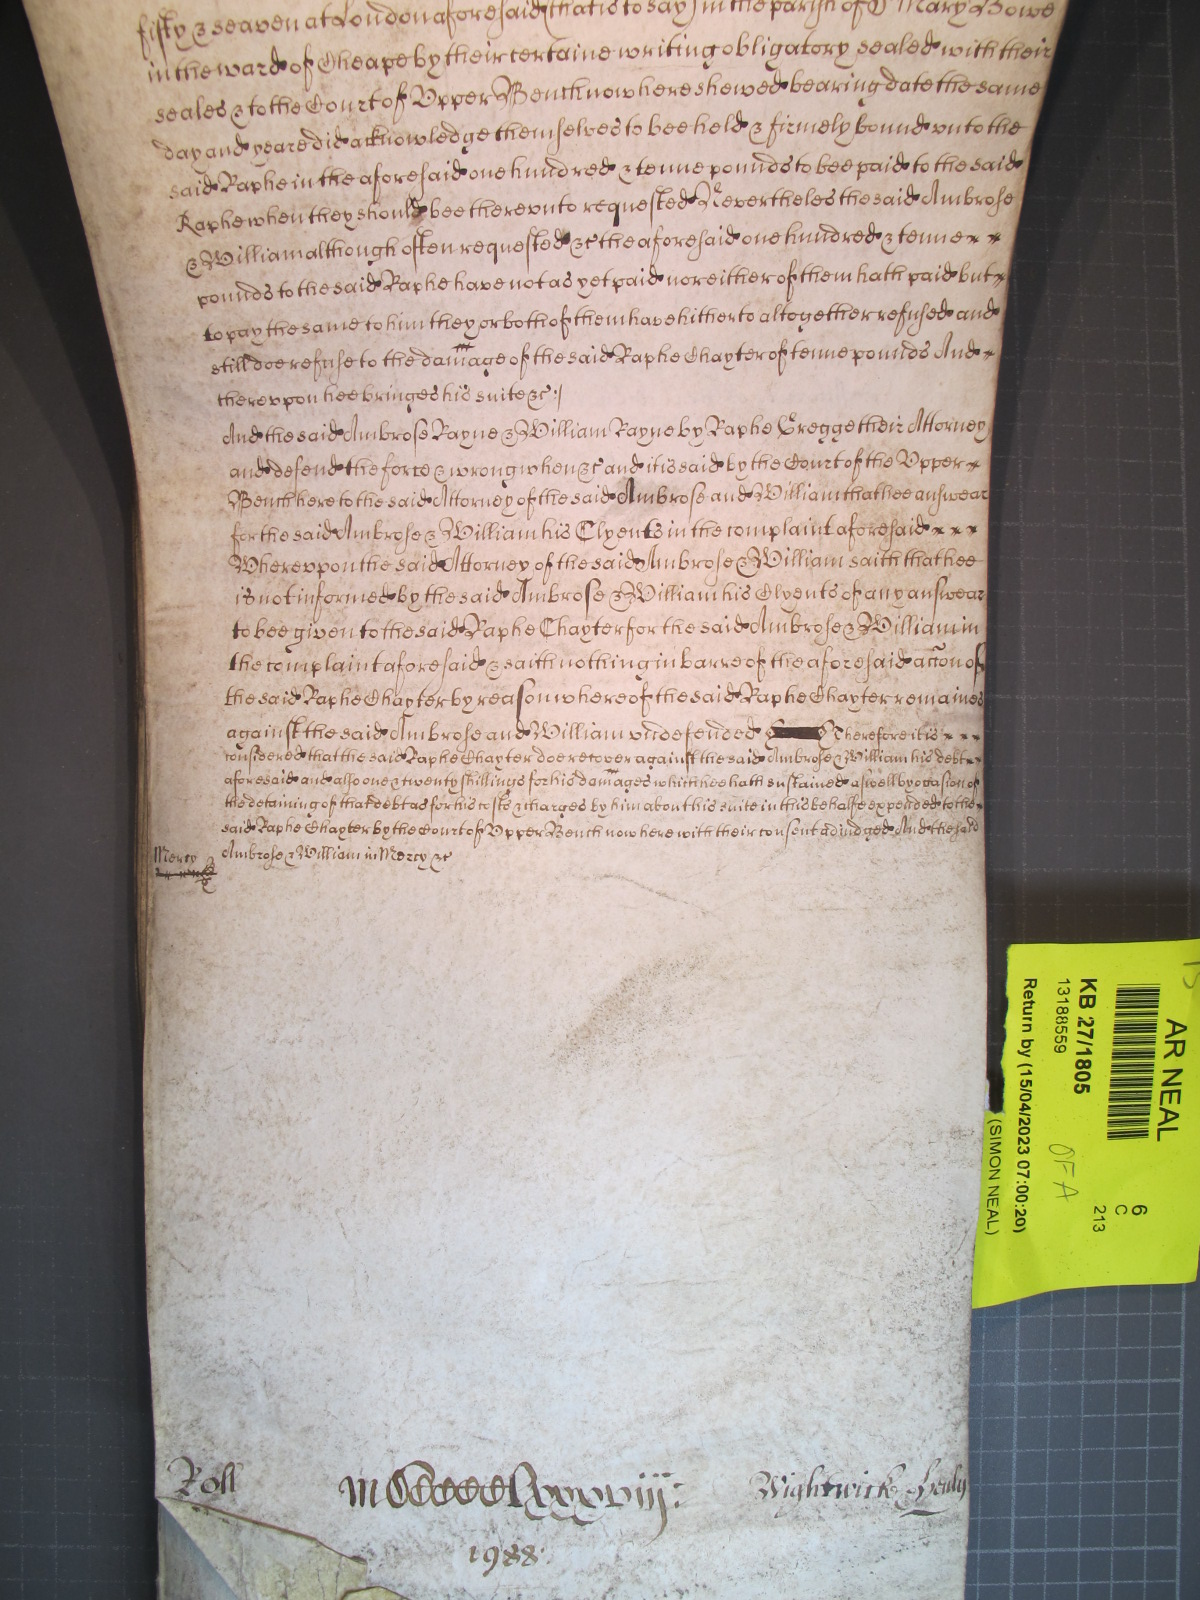 fifty & seaven at London aforesaid (that is to say) in the parish of St Mary Bowe
in the ward of Cheape by their certaine writing obligatory sealed with their
seales & to the Court of Vpper Bench now here shewed bearing date the same
day and yeare did acknowledge themselves to bee held & firmely bound vnto the
said Raphe in the aforesaid one hundred & tenne pounds to bee paid to the said
Raphe when they should bee therevnto requested Nevertheles the said Ambrose
& William although often requested &c the aforesaid one hundred & tenne
pounds to the said Raphe have not as yet paid nor either of them hath paid but
to pay the same to him they or both of them have hitherto altogether refused and
still doe refuse to the damage of the said Raphe Chayter of tenne pounds And
therevpon hee bringes his suite &c:/
And the said Ambrose Rayne & William Rayne by Raphe Gregge their Attorney
and defend the force & wrong when &c and it is said by the Court of the Vpper
Bench here to the said Attorney of the said Ambrose and William that hee answear
for the said Ambrose & William his Clyents in the complaint aforesaid
Wherevpon the said Attorney of the said Ambrose & William saith that hee
is not informed by the said Ambrose & William his Clyents of any answear
to bee given to the said Raphe Chayter for the said Ambrose & William in
the complaint aforesaid & saith nothing in barre of the aforesaid acc̃on of
the said Raphe Chayter by reason whereof the said Raphe Chayter remaines
against the said Ambrose and William vndefended Therefore it is
considered that the said Raphe Chayter doe recover against the said Ambrose & William his debt
aforesaid and also one & twenty shillings for his damages which hee hath sustained aswell by ocasion of
the detaining of that debt as for his costs & charges by him about his suite in this behalfe expended to the
said Raphe Chayter by the Court of Vpper Bench now here with their consent adiudged And the said
Mercy Ambrose & William in Mercy &c
Roll MCCCCClxxxviij: Wightwick Henly
1988
AR NEAL
KB 27/1805
13188559
Return by (15/04/2023 07:00:20)
(SIMON NEAL)
OFA
6
C
213